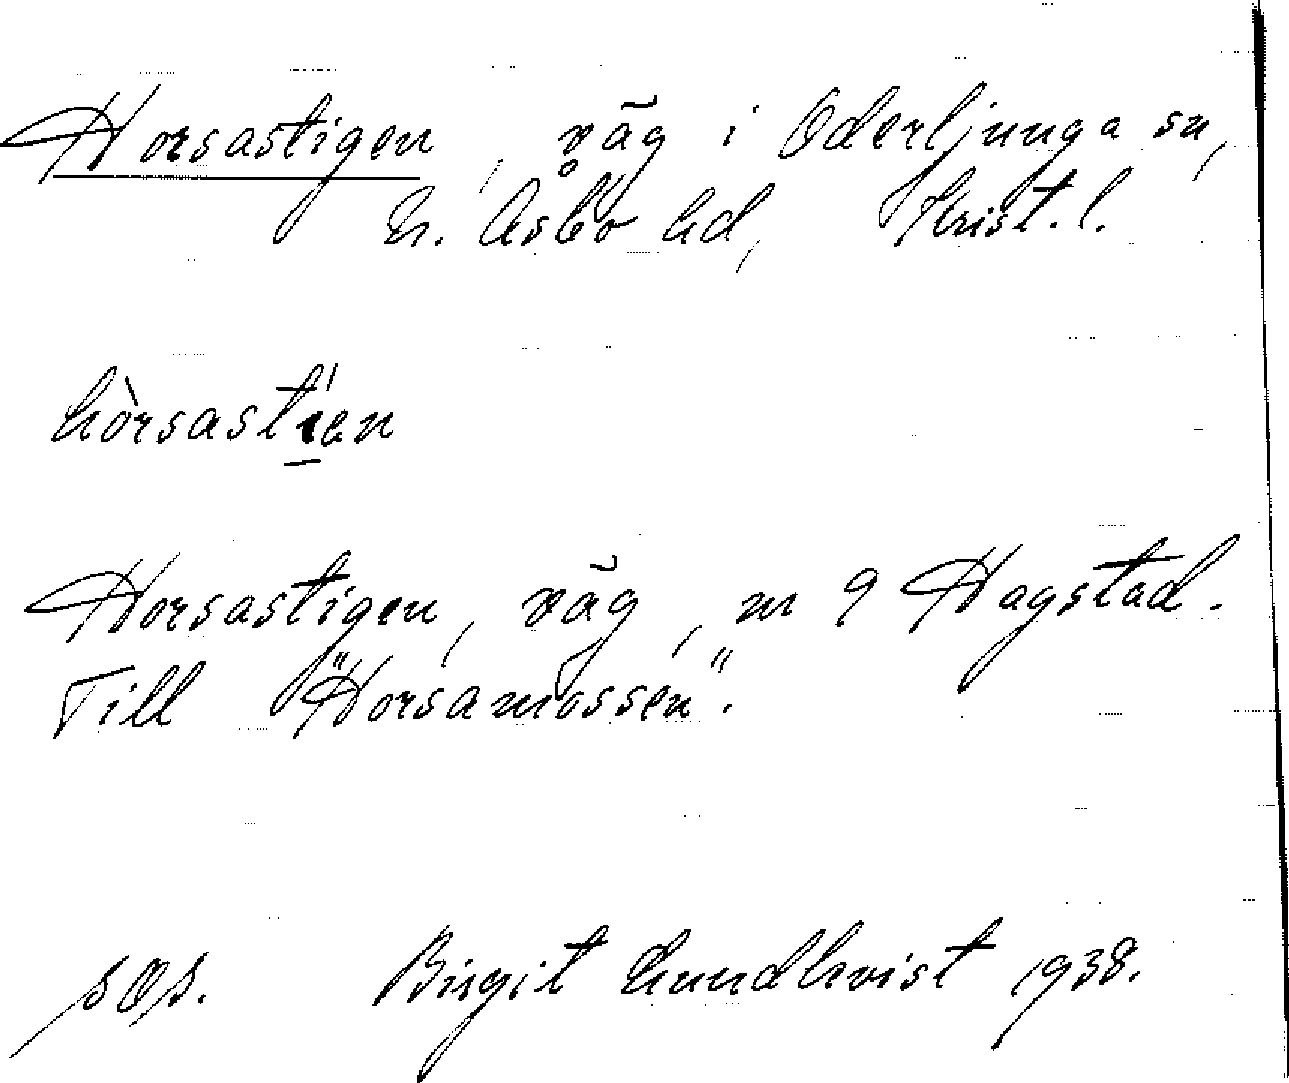 Horsastigen, väg i Oderljunga sn,
N. Åsbo hd, Krist. l.
hòrsastíen
Horsastigen, väg, nr 9 Hagstad.
Till "Horsamossen".
sOs. Birgit Lundkvist 1938.